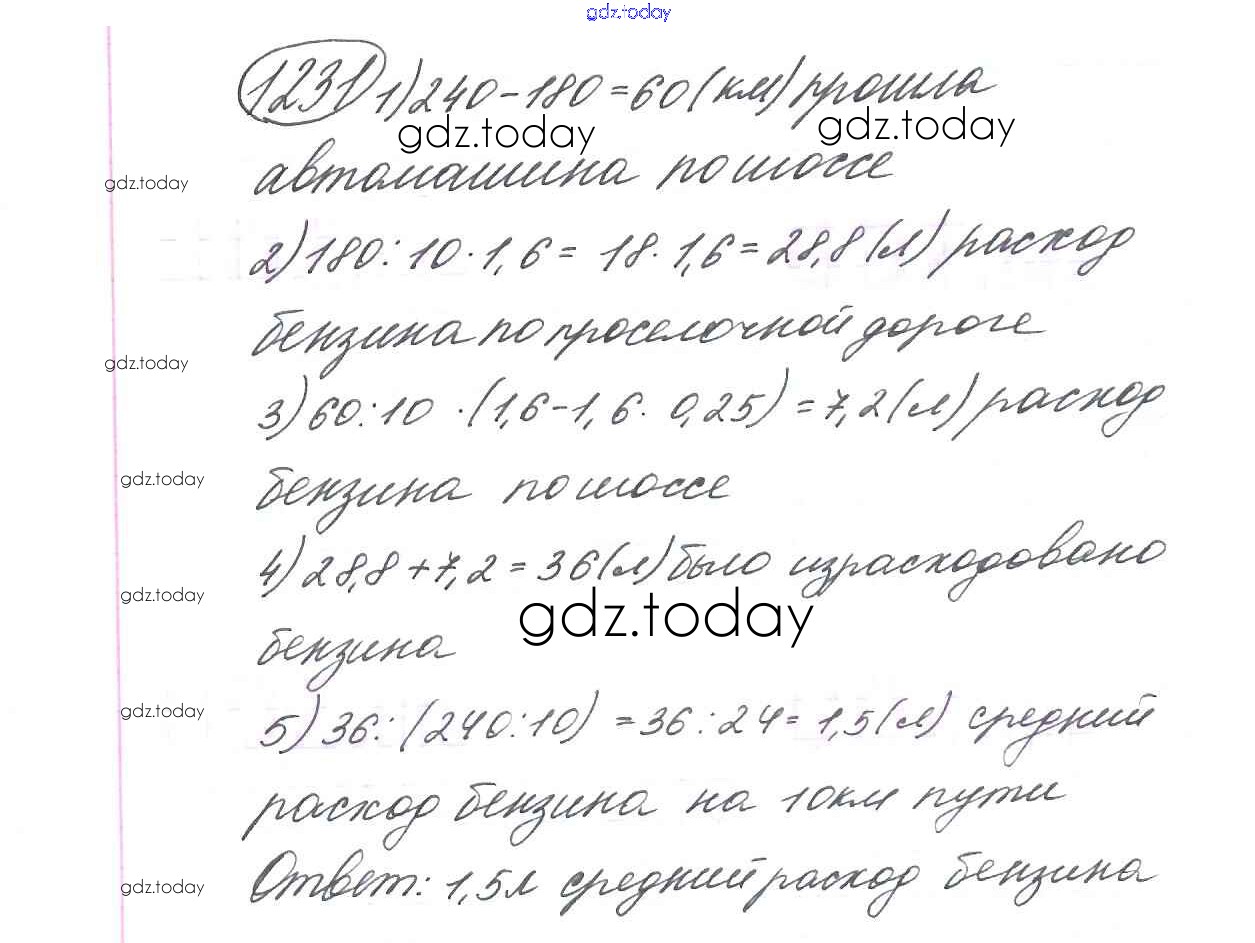 gdz.today
1231 1) 240 - 180 = 60 (км) прошла
gdz.today gdz.today
автомашина по шоссе
gdz.today
2) 180 : 10 · 1,6 = 18 · 1,6 = 28,8 (л) расход
бензина по проселочной дороге
gdz.today
3) 60 : 10 · (1,6 - 1,6 · 0,25) = 7,2 (л) расход
gdz.today
бензина по шоссе
4) 28,8 + 7,2 = 36 (л) было израсходовано
gdz.today
gdz.today
бензина
gdz.today
5) 36 : (240 : 10) = 36 : 24 = 1,5 (л) средний
расход бензина на 10 км пути
gdz.today
Ответ: 1,5 л средний расход бензина